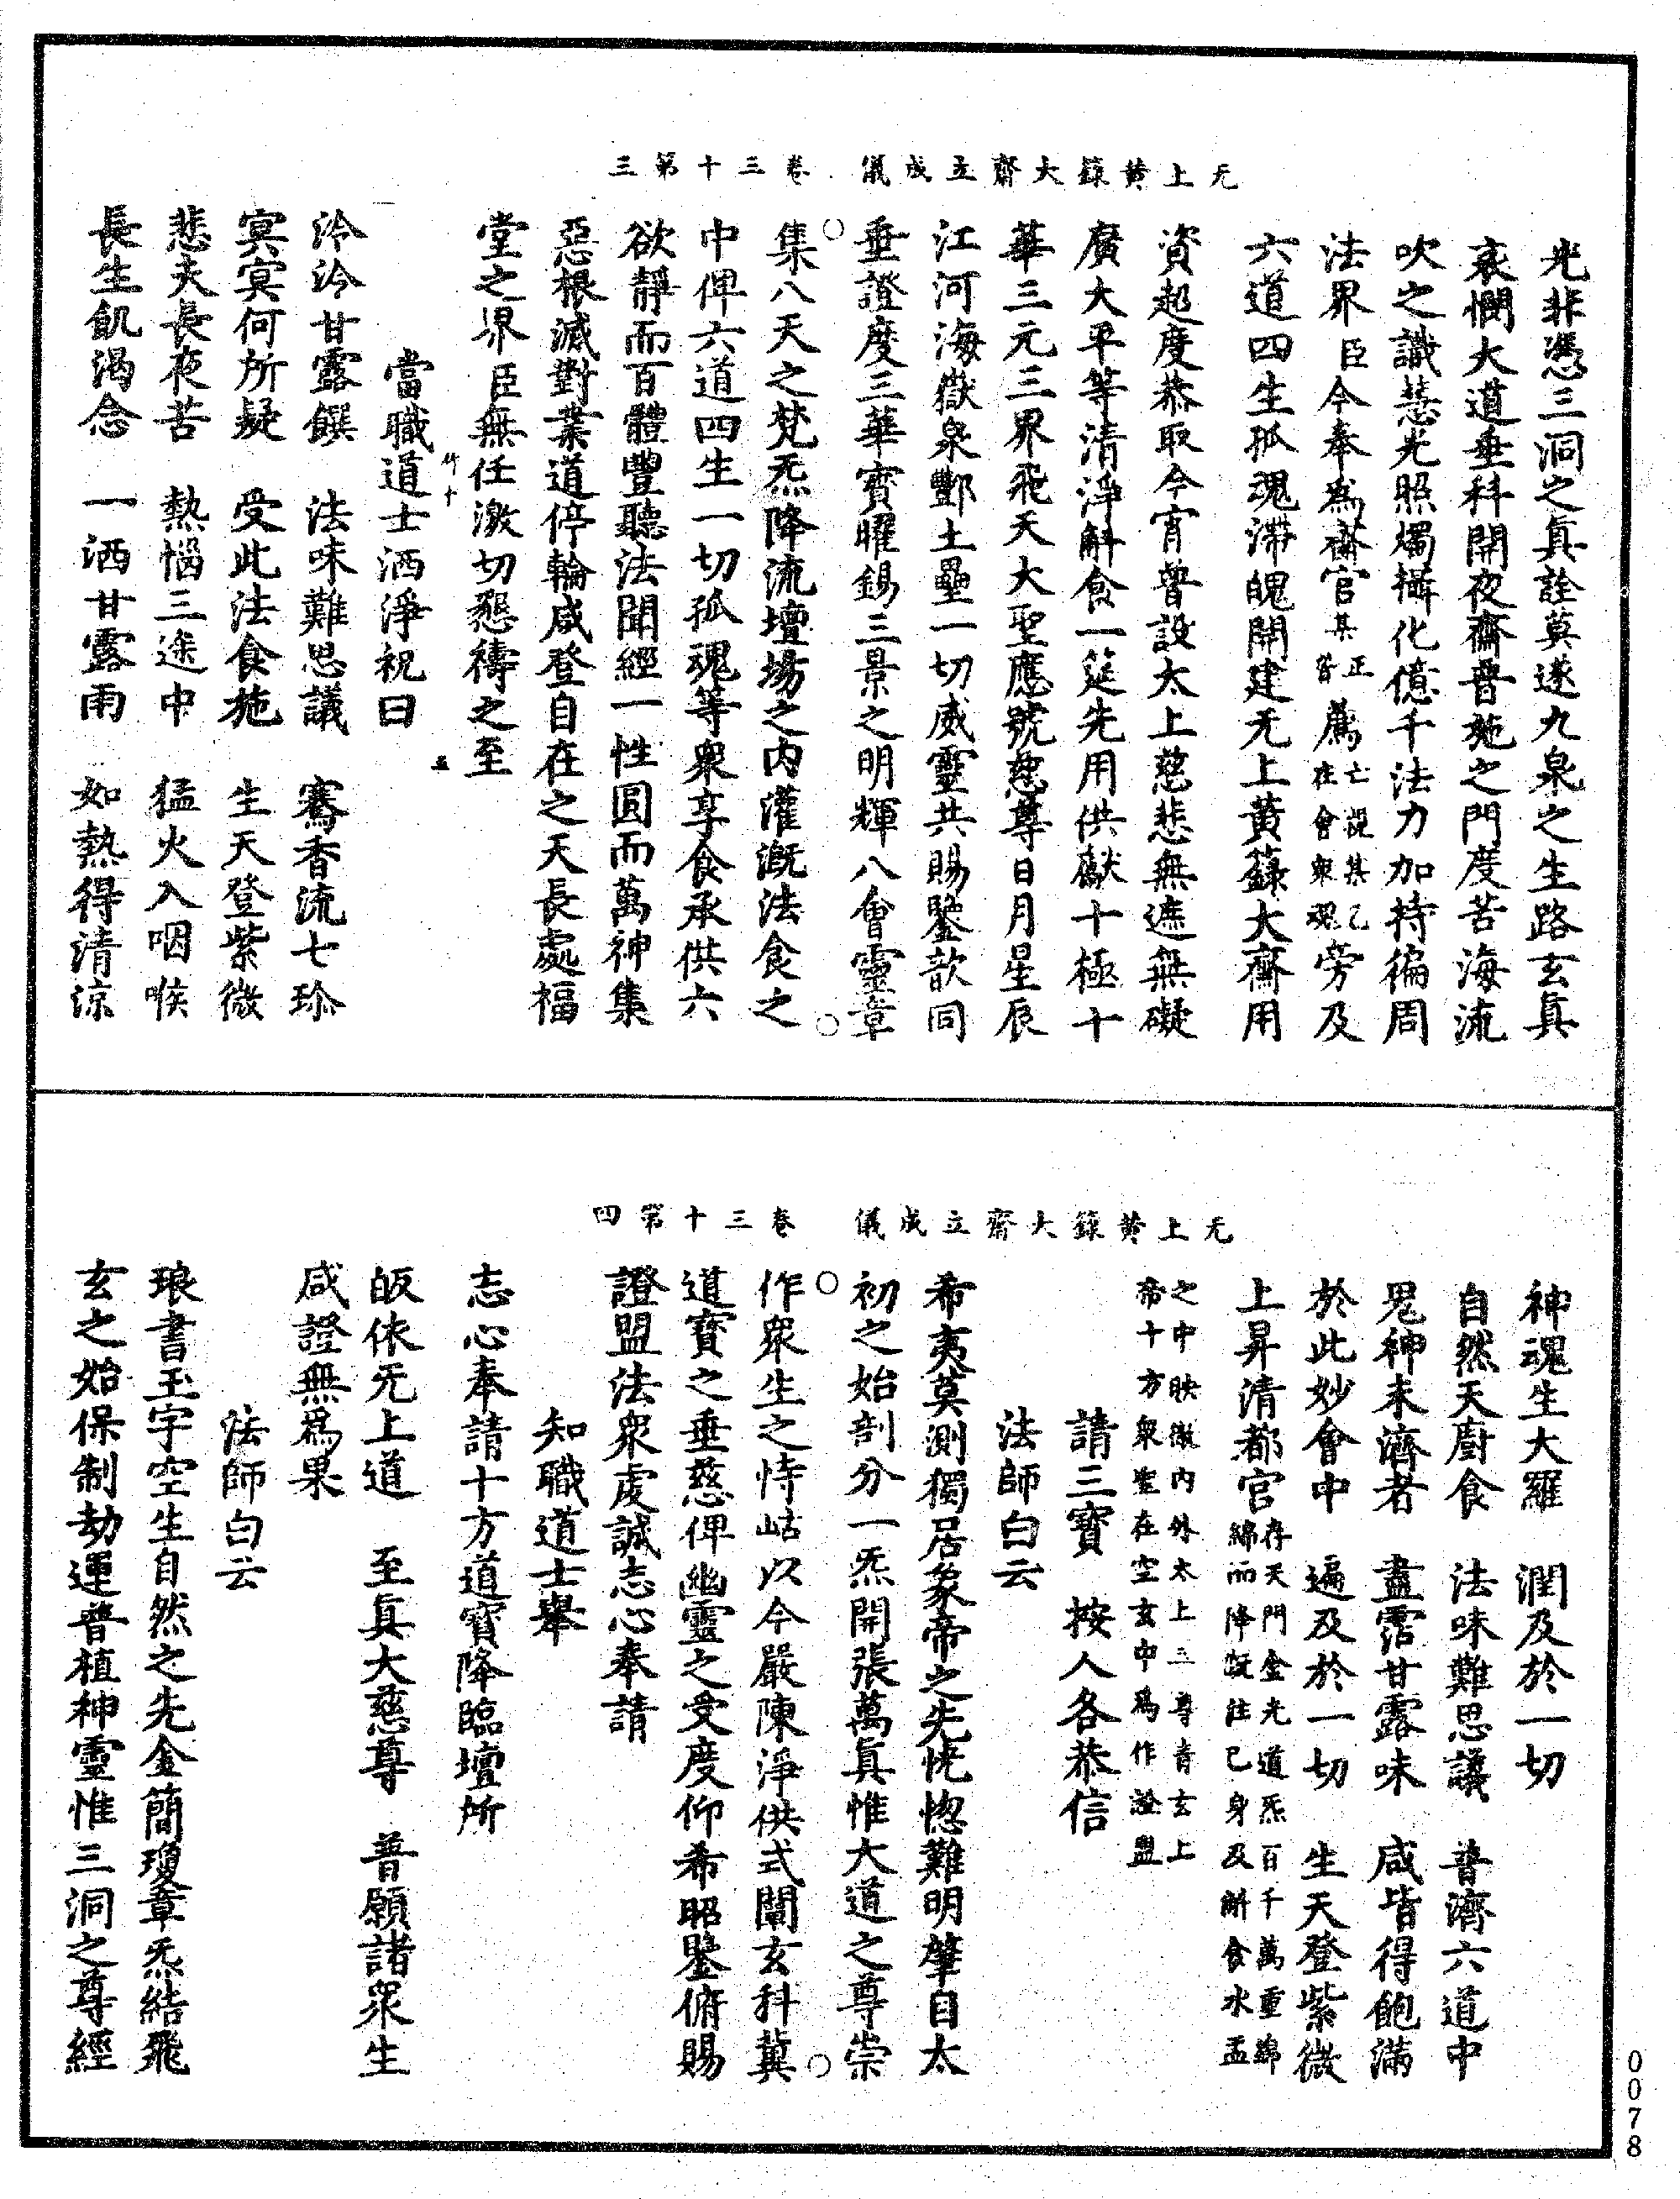 无上黃籙大齋立成儀　卷三十第三
光非憑三洞之眞詮莫遂九泉之生路玄眞
哀憫大道垂科開夜齋普施之門度苦海流
吹之識慧光照燭攝化億千法力加持徧周
法界臣今奉爲齋官某正薦亡觀某乙旁及
皆在會衆魂
六道四生孤魂滯魄開建无上黃籙大齋用
資超度恭取今宵普設太上慈悲無遮無礙
廣大平等清淨斛食一筵先用供獻十極十
華三元三界飛天大聖應號慈尊日月星辰
江河海嶽泉酆土壘一切威靈共賜鑒歆同
垂證度三華寶曜錫三景之明輝八會靈章
集八天之梵炁降流壇場之內灌漑法食之
中俾六道四生一切孤魂等衆享食承供六
欲靜而百體豐聽法聞經一性圓而萬神集
惡根滅對業道停輪咸登自在之天長處福
堂之界臣無任激切懇禱之至
當職道士洒淨祝曰
泠泠甘露饌　法味難思議　騫香流七珍
冥冥何所疑　受此法食施　生天登紫微
悲夫長夜苦　熱惱三途中　猛火入咽喉
長生飢渴念　一洒甘露雨　如熱得清涼
无上黃籙大齋立成儀　卷三十第四
神魂生大羅　潤及於一切
自然天廚食　法味難思議　普濟六道中
鬼神未濟者　盡霑甘露味　咸皆得飽滿
於此妙會中　遍及於一切　生天登紫微
上昇清都官存天門金光道炁百千萬重綿
綿而降旣注已身及斛食水盂
之中映徹內外太上三尊青玄上
帝十方衆聖在空玄中爲作證盟
請三寶　按人各恭信
法師白云
希夷莫測獨居象帝之先恍惚難明肇自太
初之始剖分一炁開張萬眞惟大道之尊崇
作衆生之恃怙以今嚴陳淨供式闡玄科冀
道寶之垂慈俾幽靈之受度仰希昭鑒俯賜
證盟法衆虔誠志心奉請
知職道士舉
志心奉請十方道寶降臨壇所
皈依无上道　至眞大慈尊　普願諸衆生
咸證無爲果
法師白云
琅書玉字空生自然之先金簡瓊章炁結飛
玄之始保制劫運普植神靈惟三洞之尊經
0078